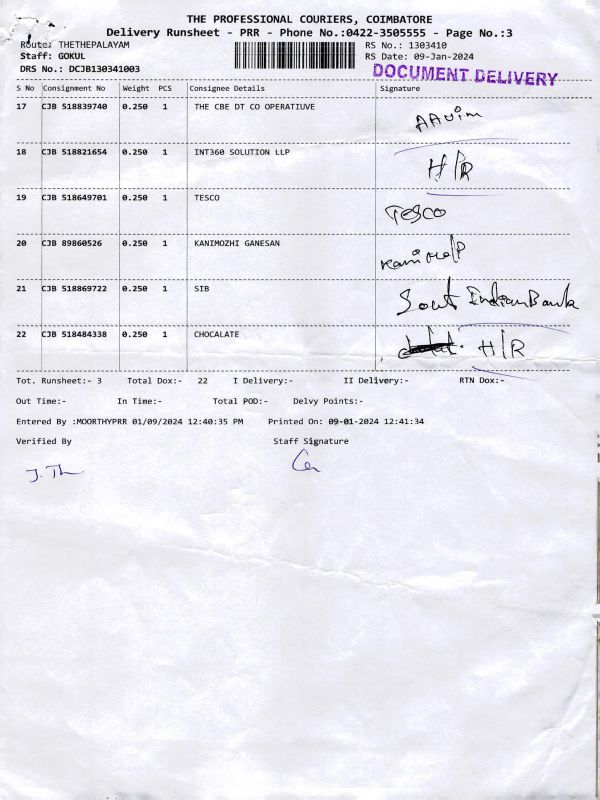 THE PROFESSIONAL COURIERS, COIMBATORE
Delivery Runsheet - PRR - Phone No.:0422-3505555 - Page No.:3
Route: THETHEPALAYAM
RS No.: 1303410
Staff: GOKUL
RS Date: 09-Jan-2024
DRS No.: DCJB130341003
DOCUMENT DELIVERY
S No Consignment No Weight PCS Consignee Details Signature
17 CJB 518839740 0.250 1 THE CBE DT CO OPERATIUVE
18 CJB 518821654 0.250 1 INT360 SOLUTION LLP H/R
19 CJB 518649701 0.250 1 TESCO TESCO
20 CJB 89860526 0.250 1 KANIMOZHI GANESAN
21 CJB 518869722 0.250 1 SIB South Indian Bank
22 CJB 518484338 0.250 1 CHOCALATE H/R
Tot. Runsheet:- 3 Total Dox:- 22 I Delivery:- II Delivery:- RTN Dox:-
Out Time:- In Time:- Total POD:- Delvy Points:-
Entered By :MOORTHYPRR 01/09/2024 12:40:35 PM Printed On: 09-01-2024 12:41:34
Verified By Staff Signature